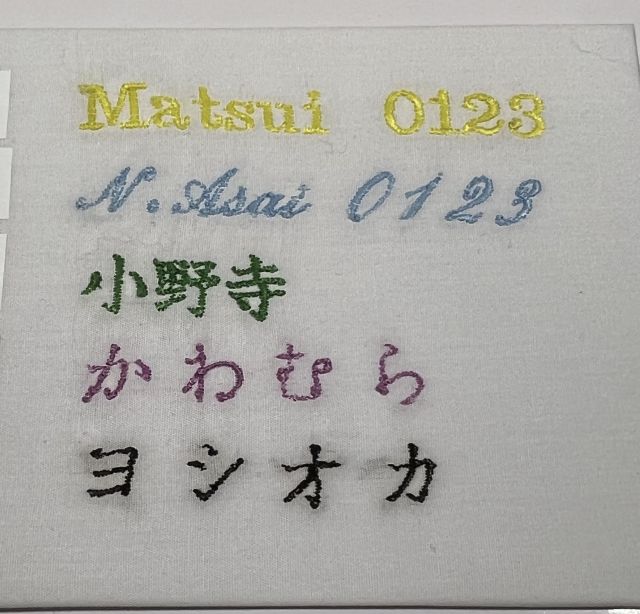 Matsui 0123
N. Asai 0123
小野寺
かわむら
ヨシオカ